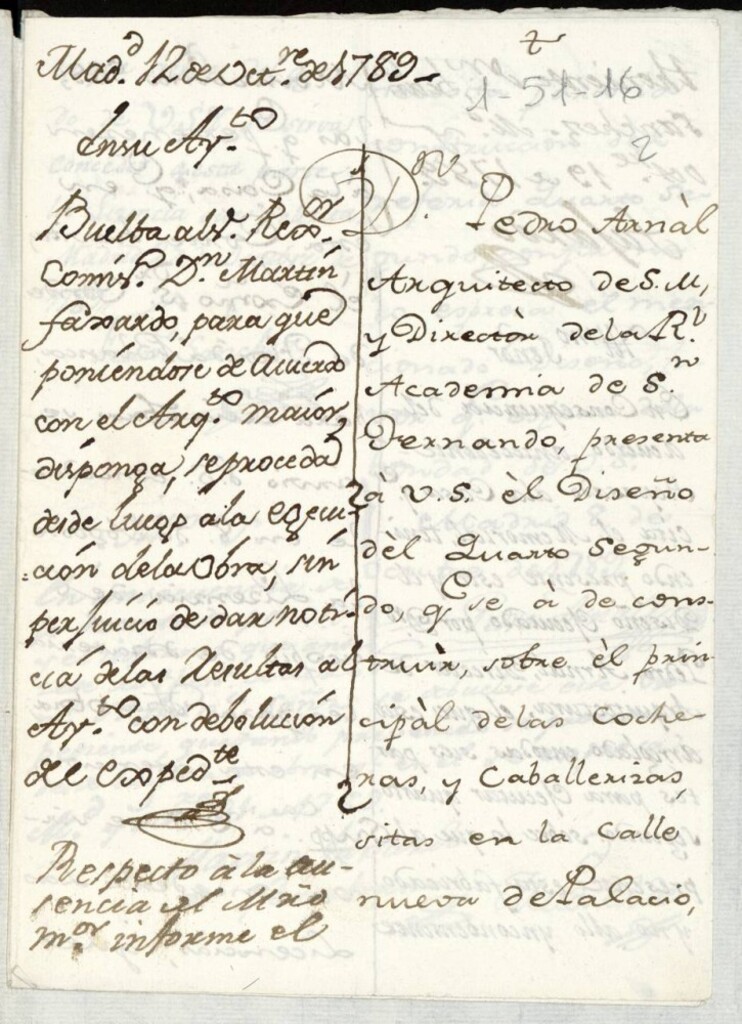 Mad.d 12 de Oct.re de 1789
En su Ay.to
Buelba al S.r Rex.or
Comis.o D.n Martin
faxardo, para que
poniendose de Acuerdo
con el Arq.to maior,
disponga, se proceda
desde luego a la egecu-
=ción de la Obra, sin
perjuicio de dar noti-
cia de las Resultas al
Ay.to con debolución
del exped.te
Respecto à la au-
sencia el Mro
m.or informe el
1-51-16
2
D.n Pedro Arnàl
Arquitecto de S. M,
y Directòr de la R.l
Academia de S.n
Fernando, presenta
à V.S. èl Diseño
dèl Quarto Segun-
do, q.e se à de cons-
truir, sobre èl prin-
cipàl de las Coche-
ras, y Caballerizas,
sitas en la Calle
nueva de Palacio,